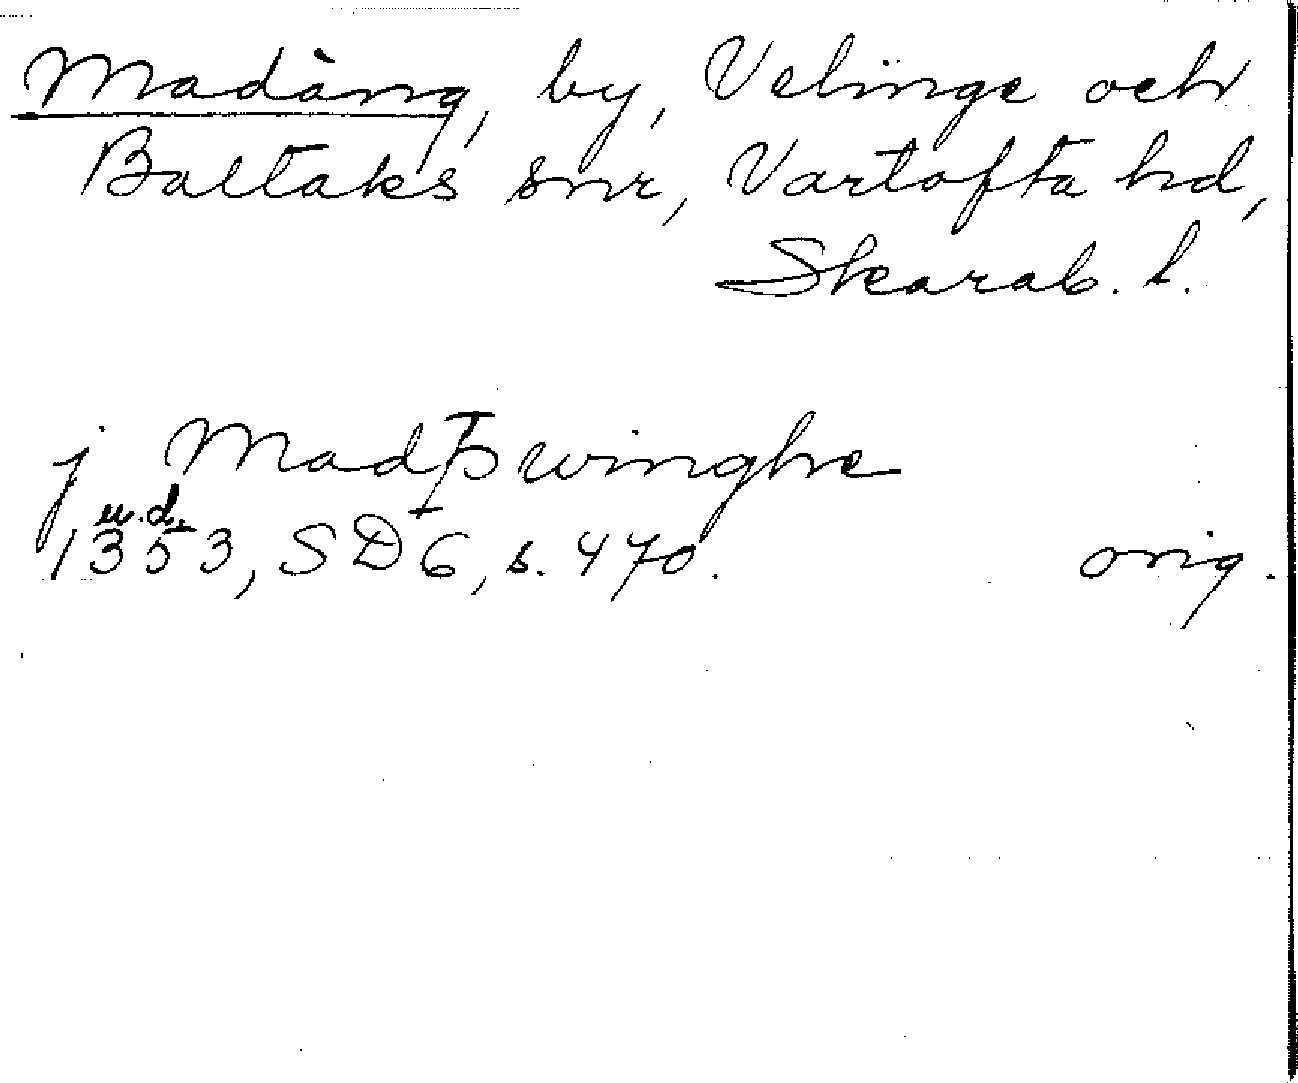 Madäng, by, Velinge och
Baltaks snr, Vartofta hd,
Skarab. l.
j Madþwinghe
u.d.
1353, SD 6, s. 470. orig.